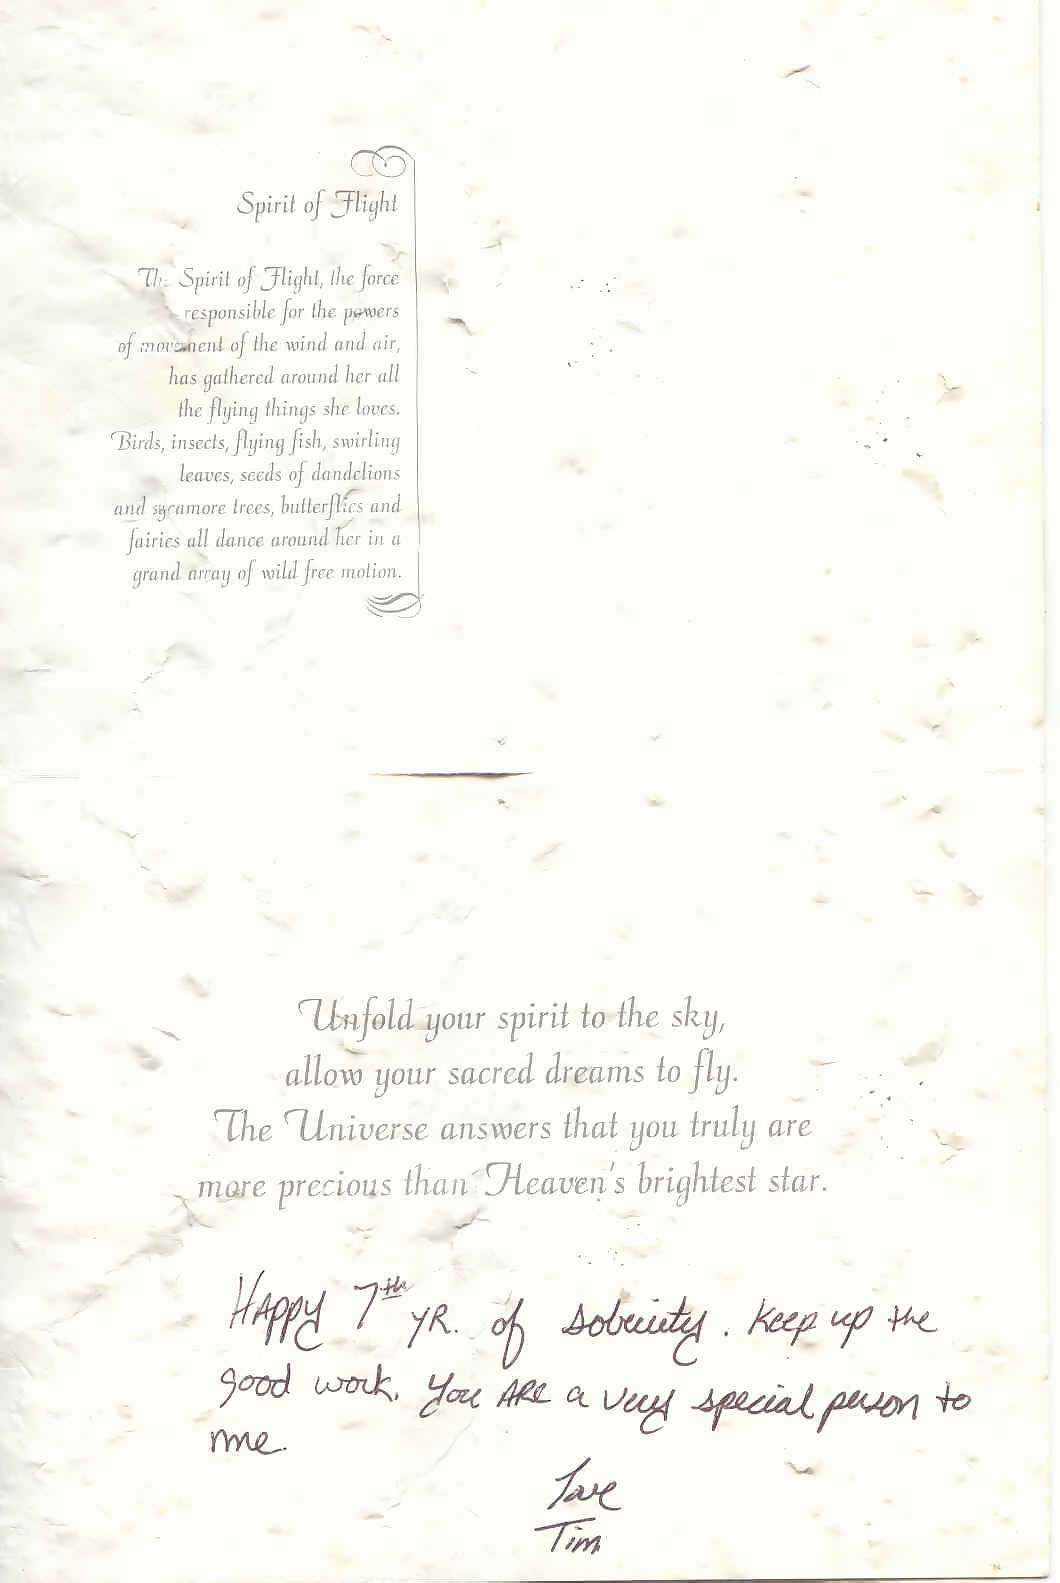 Spirit of Flight
The Spirit of Flight, the force
responsible for the powers
of movement of the wind and air,
has gathered around her all
the flying things she loves.
Birds, insects, flying fish, swirling
leaves, seeds of dandelions
and sycamore trees, butterflies and
fairies all dance around her in a
grand array of wild free motion.
Unfold your spirit to the sky,
allow your sacred dreams to fly.
The Universe answers that you truly are
more precious than Heaven's brightest star.
HAppy 7th YR. of sobriety. Keep up the
good work. You ARE a very special person to
me.
Love
Tim